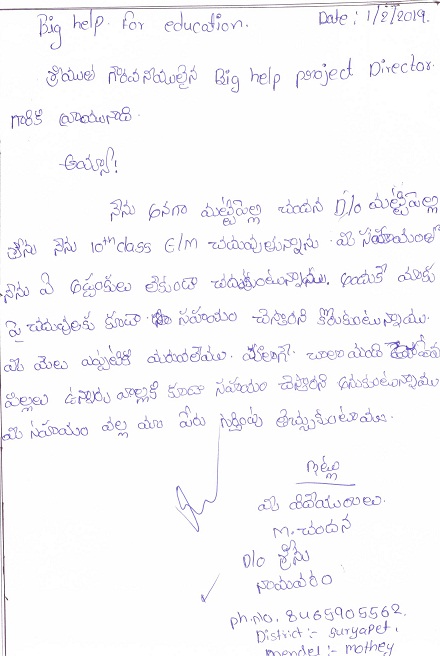 Big help for education. Date: 1/2/2019.
శ్రీయుత గౌరవనీయులైన Big help project Director
గారికి వ్రాయునది.
అయ్యా!
నేను అనగా మట్టిపెల్లి చందన D/o మట్టిపెల్లి
శ్రీను నేను 10th class E/M చదువుతున్నాను. మీ సహాయంతో
నేను ఏ ఇబ్బందులు లేకుండా చదుకుంటున్నాను. అందుకే మాకు
పై చదువులకు కూడా సహాయం చేస్తారని కోరుకుంటున్నాము.
మీ మేలు ఎప్పటికీ మరువలేము. చాలా మంది
పిల్లలు ఉన్నారు వాళ్లకి కూడా సహాయం చేస్తారని అనుకుంటున్నాము
మీ సహాయం వల్ల మా పేరు గుర్తింపు తెచ్చుకుంటాము.
ఇట్లు
మీ విదేయురాలు.
M. చందన
D/o శ్రీను
నామవరం
ph.no. 8465905562.
District :- suryapet.
mendel :- mothey